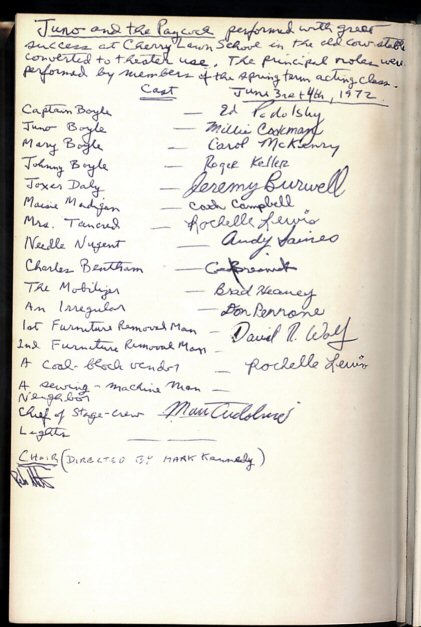 Juno and the Paycock performed with great
success at Cherry Lawn School in the old cow-stable
converted to theater use. The principal roles were
performed by members of the spring term acting class.
Cast June 3rd & 4th, 1972
Captain Boyle — Ed Podolsky
Juno Boyle — Millie
Mary Boyle — Carol McKenry
Johnny Boyle — Roger Keller
Joxer Daly — Jeremy Burwell
Maisie Madigan — Campbell
Mrs. Tancred — Rochelle Lewis
Needle Nugent — Andy
Charles Bentham —
The Mobilizer — Brad Heaney
An Irregular — Don Perrone
1st Furniture Removal Man — David R. Wolf
2nd Furniture Removal Man —
A coal-block vendor — Rochelle Lewis
A sewing-machine man —
Neighbor
Chief of Stage-crew
Lights
CHAIR (DIRECTED BY MARK Kennedy)